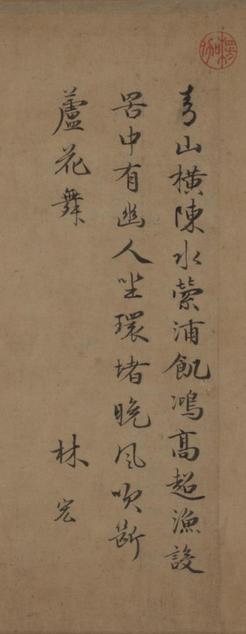 青山橫陳水縈浦飢鴻高超漁設
罟中有幽人坐環堵晚風吹斷
蘆花舞
林宏